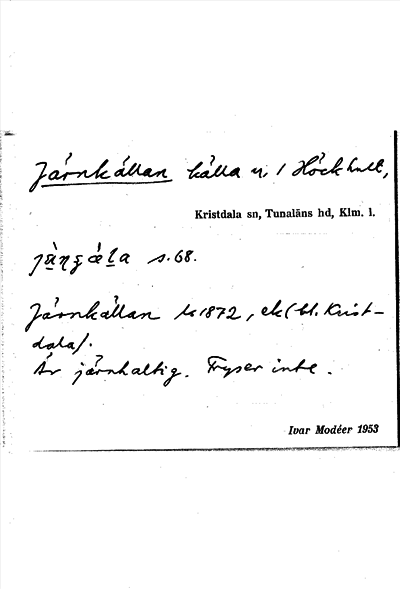 Järnkällan källa n. / Höckhult,
Kristdala sn, Tunaläns hd, Klm. l.
s. 68.
Järnkällan 1872, ek (bl. Krist-
dala).
Är järnhaltig. Fryser inte.
Ivar Modéer 1953